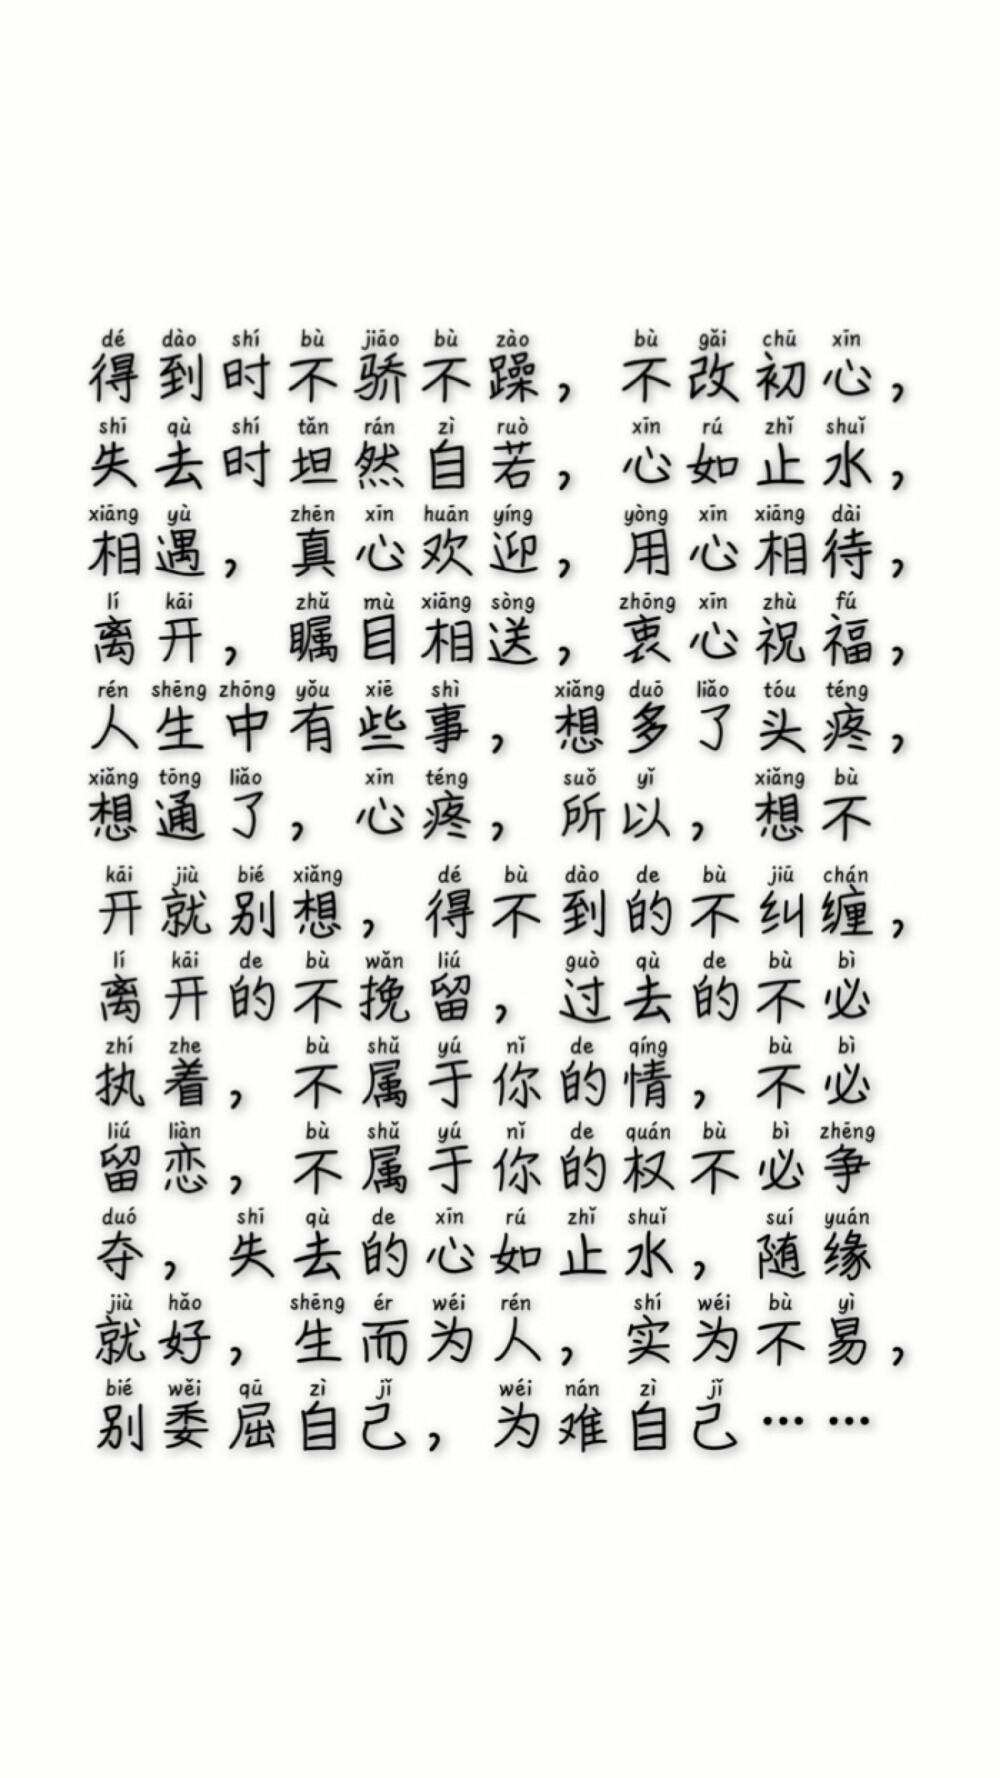 dé dào shí bù jiāo bù zào bù gǎi chū xīn
得到时不骄不躁，不改初心，
shī qù shí tǎn rán zì ruò xīn rú zhǐ shuǐ
失去时坦然自若，心如止水，
xiāng yù zhēn xīn huān yíng yòng xīn xiāng dài
相遇，真心欢迎，用心相待，
lí kāi zhǔ mù xiāng sòng zhōng xīn zhù fú
离开，瞩目相送，衷心祝福，
rén shēng zhōng yǒu xiē shì xiǎng duō liǎo tóu téng
人生中有些事，想多了头疼，
xiǎng tōng liǎo xīn téng suǒ yǐ xiǎng bù
想通了，心疼，所以，想不
kāi jiù bié xiǎng dé bù dào de bù jiū chán
开就别想，得不到的不纠缠，
lí kāi de bù wǎn liú guò qù de bù bì
离开的不挽留，过去的不必
zhí zhe bù shǔ yú nǐ de qíng bù bì
执着，不属于你的情，不必
liú liàn bù shǔ yú nǐ de quán bù bì zhēng
留恋，不属于你的权不必争
duó shī qù de xīn rú zhǐ shuǐ suí yuán
夺，失去的心如止水，随缘
jiù hǎo shēng ér wéi rén shí wéi bù yì
就好，生而为人，实为不易，
bié wěi qū zì jǐ wéi nán zì jǐ
别委屈自己，为难自己……